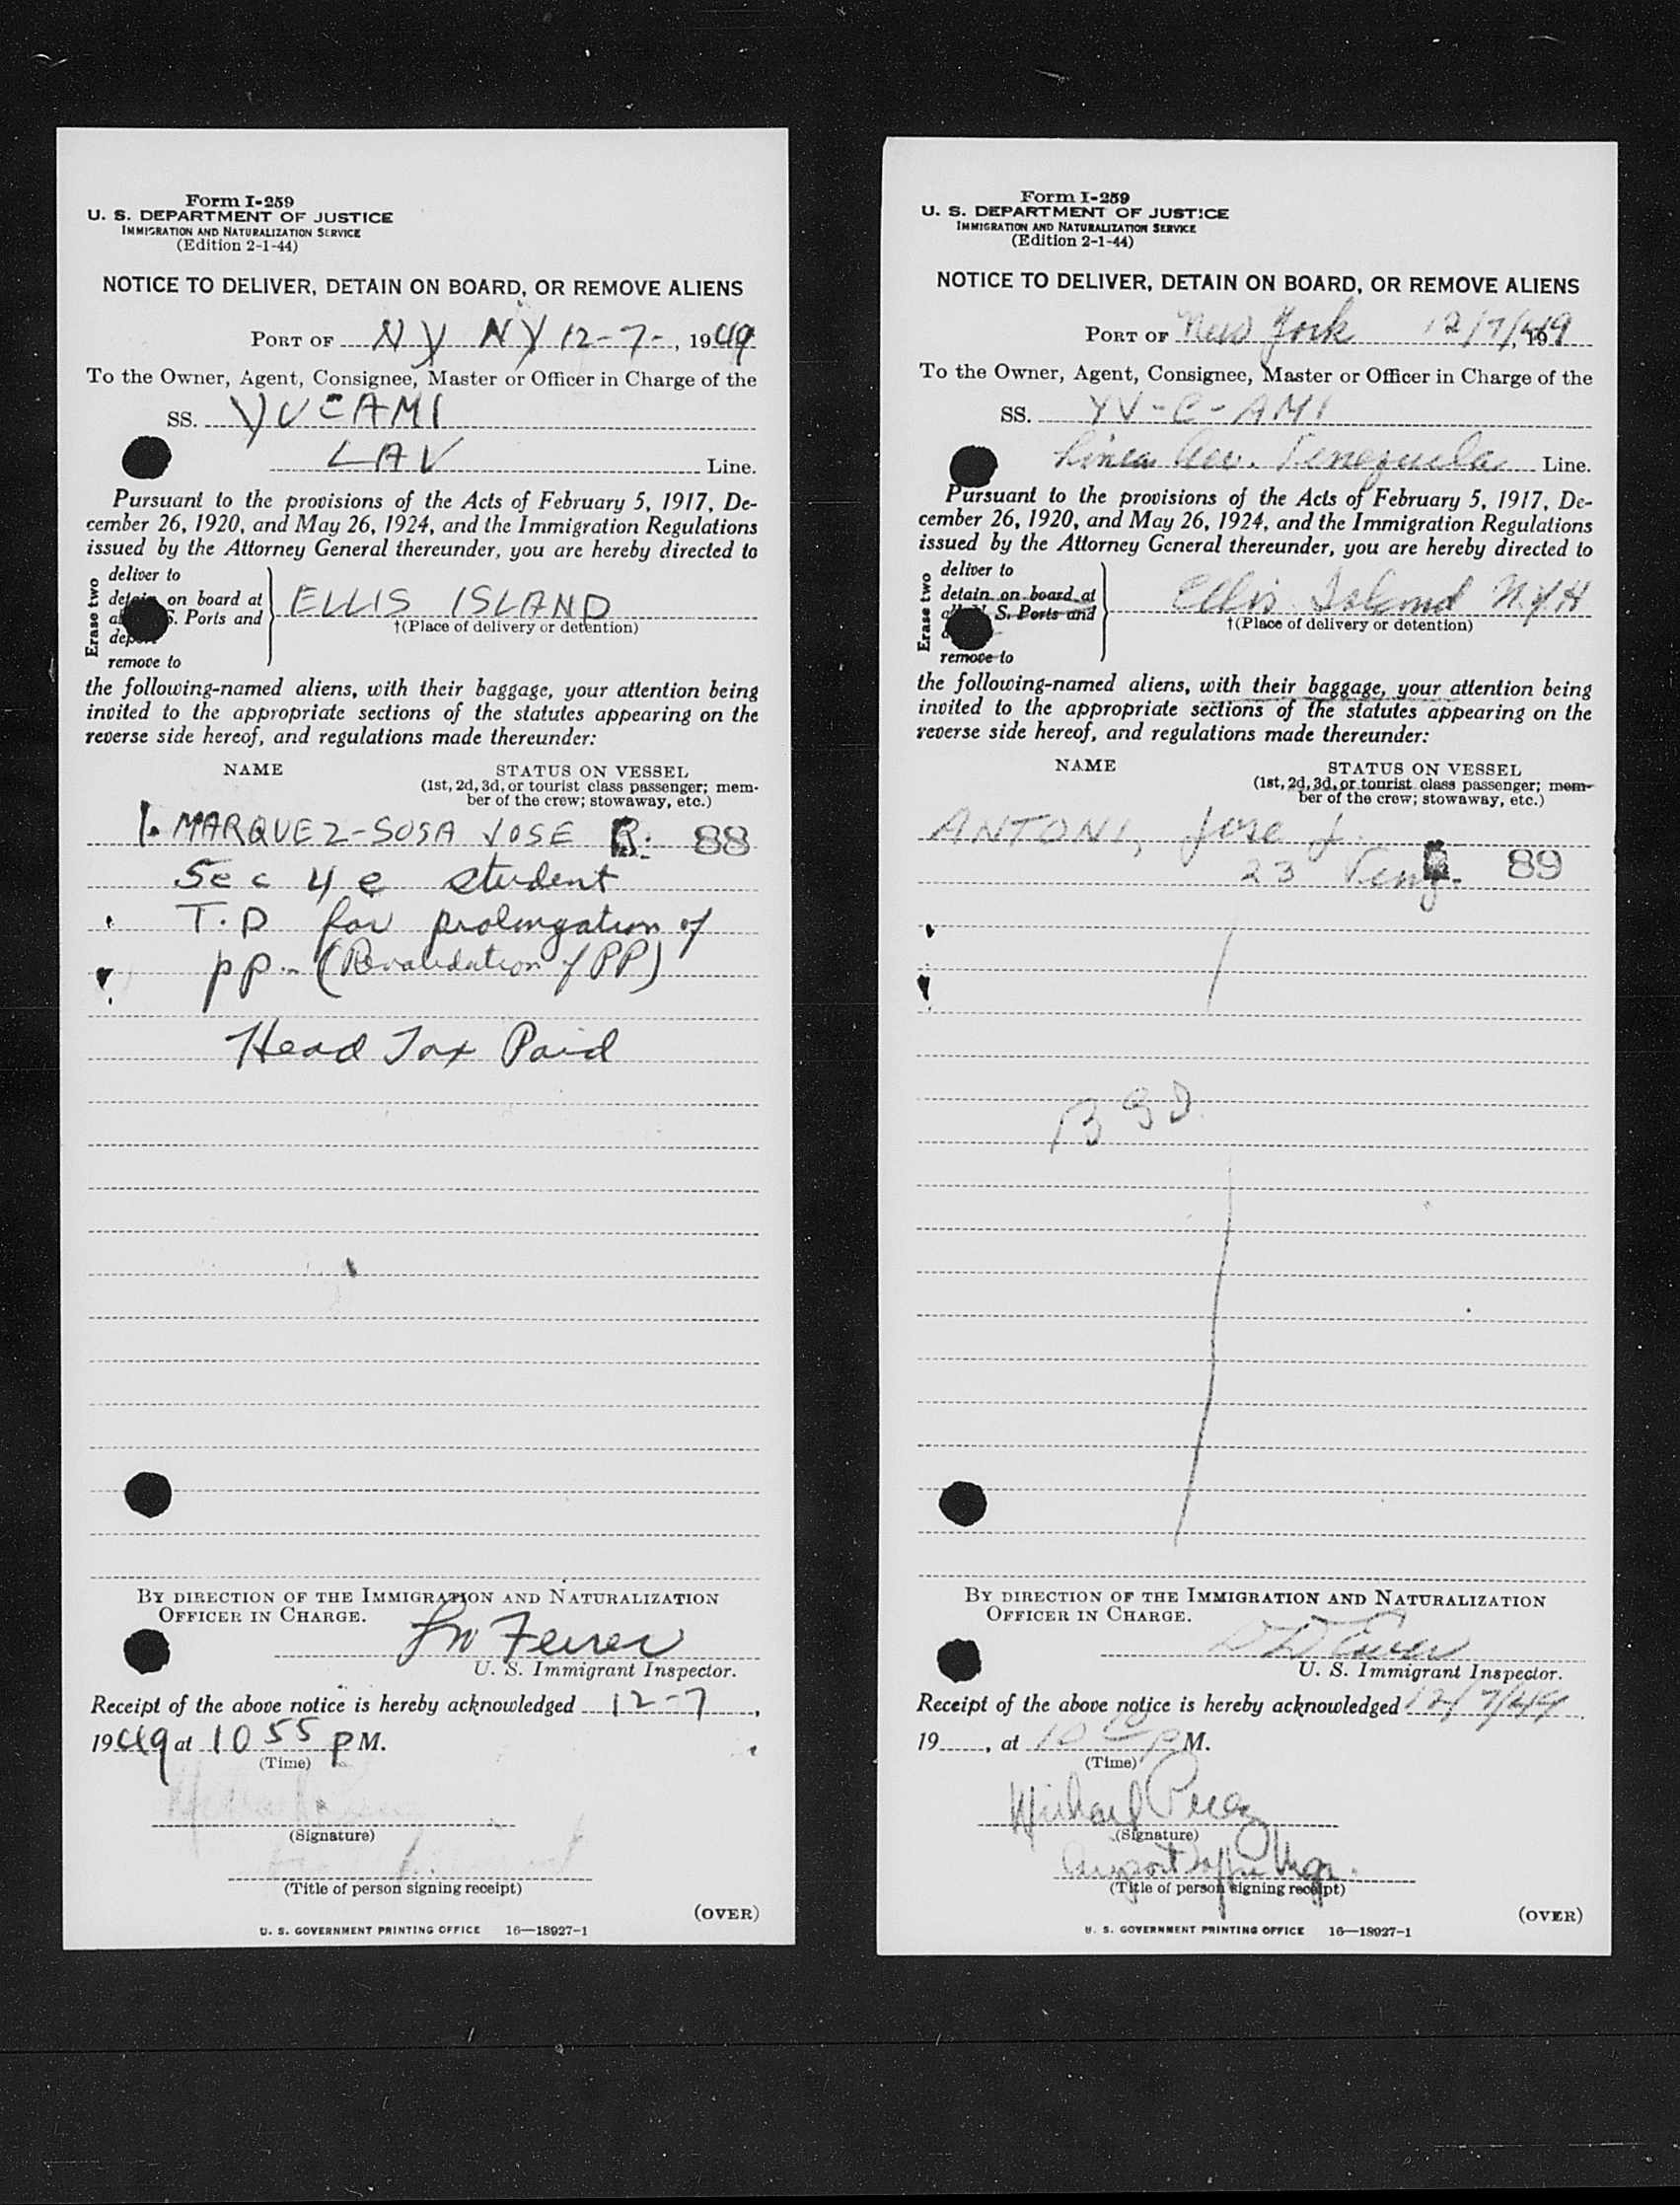 Form I-259
U. S. DEPARTMENT OF JUSTICE
IMMIGRATION AND NATURALIZATION SERVICE
(Edition 2-1-44)
NOTICE TO DELIVER, DETAIN ON BOARD, OR REMOVE ALIENS
PORT OF NY NY 12-7-, 1949
To the Owner, Agent, Consignee, Master or Officer in Charge of the
SS. YVCAMI
LAV Line.
Pursuant to the provisions of the Acts of February 5, 1917, De-
cember 26, 1920, and May 26, 1924, and the Immigration Regulations
issued by the Attorney General thereunder, you are hereby directed to
Erase two
deliver to
on board at
S. Ports and
remove to
ELLIS ISLAND
†(Place of delivery or detention)
the following-named aliens, with their baggage, your attention being
invited to the appropriate sections of the statutes appearing on the
reverse side hereof, and regulations made thereunder:
NAME STATUS ON VESSEL
(1st, 2d, 3d, or tourist class passenger; mem-
ber of the crew; stowaway, etc.)
1. MARQUEZ-SOSA JOSE R. 88
Sec 4 e student
T.D for prolongation of
pp.- (Revalidation of PP)
Head Tax Paid
BY DIRECTION OF THE IMMIGRATION AND NATURALIZATION
OFFICER IN CHARGE.
U. S. Immigrant Inspector.
Receipt of the above notice is hereby acknowledged 12-7,
1949 at 10 55 P M.
(Time)
(Signature)
(Title of person signing receipt)
(OVER)
U. S. GOVERNMENT PRINTING OFFICE 16—18927-1
Form I-259
U. S. DEPARTMENT OF JUSTICE
IMMIGRATION AND NATURALIZATION SERVICE
(Edition 2-1-44)
NOTICE TO DELIVER, DETAIN ON BOARD, OR REMOVE ALIENS
PORT OF New York 12/7/49, 19
To the Owner, Agent, Consignee, Master or Officer in Charge of the
SS. YV-C-AMI
Linea Aeo. Venezuela Line.
Pursuant to the provisions of the Acts of February 5, 1917, De-
cember 26, 1920, and May 26, 1924, and the Immigration Regulations
issued by the Attorney General thereunder, you are hereby directed to
Erase two
deliver to
detain on board at
S. Ports and
remove to
Ellis Island N.Y.H
†(Place of delivery or detention)
the following-named aliens, with their baggage, your attention being
invited to the appropriate sections of the statutes appearing on the
reverse side hereof, and regulations made thereunder:
NAME STATUS ON VESSEL
(1st, 2d, 3d, or tourist class passenger; mem-
ber of the crew; stowaway, etc.)
ANTONI, Jose J.
23 Venz. 89
BY DIRECTION OF THE IMMIGRATION AND NATURALIZATION
OFFICER IN CHARGE.
U. S. Immigrant Inspector.
Receipt of the above notice is hereby acknowledged 12/7/49.
19, at 10 P M.
(Time)
Michael Perez
(Signature)
Airport Mgr.
(Title of person signing receipt)
(OVER)
U. S. GOVERNMENT PRINTING OFFICE 16—18927-1